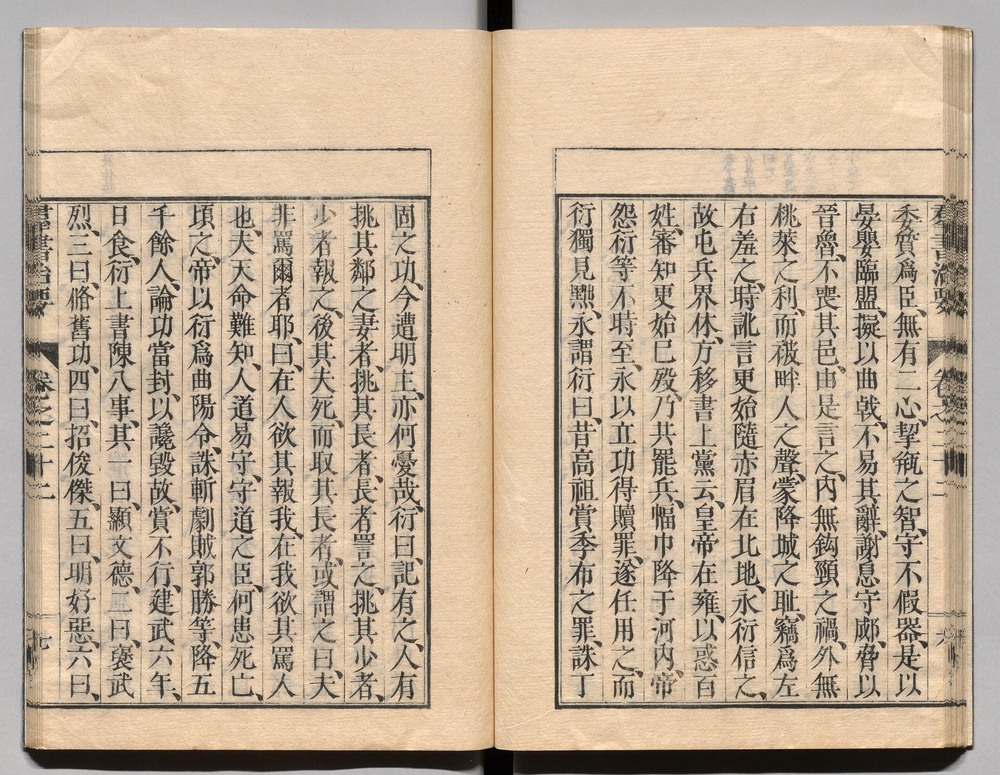 羣書治要 卷之二十二
委質爲臣、無有二心、挈瓶之智、守不假器、是以
晏嬰臨盟、擬以曲戟、不易其辭、謝息守郕、脅以
晉魯、不喪其邑、由是言之、內無鈎頸之禍、外無
桃萊之利、而被畔人之聲、蒙降城之耻、竊爲左
右羞之、時訛言更始隨赤眉在北地、永衍信之、
故屯兵界休、方移書上黨云、皇帝在雍、以惑百
姓、審知更始已歿、乃共罷兵、幅巾降于河內、帝
怨衍等不時至、永以立功得贖罪、遂任用之、而
衍獨見黜、永謂衍曰、昔高祖賞季布之罪、誅丁
固之功、今遭明主、亦何憂哉、衍曰、記有之、人有
挑其鄰之妻者、挑其長者、長者詈之、挑其少者、
少者報之、後其夫死、而取其長者、或謂之曰、夫
非罵爾者耶、曰、在人欲其報我、在我欲其罵人
也、夫天命難知、人道易守、守道之臣、何患死亡、
頃之、帝以衍爲曲陽令、誅斬劇賊郭勝等、降五
千餘人、論功當封、以讒毀故、賞不行、建武六年、
日食、衍上書陳八事、其一曰、顯文德、二曰、襃武
烈、三曰、脩舊功、四曰、招俊傑、五曰、明好惡、六曰、
羣書治要 卷之二十二 九